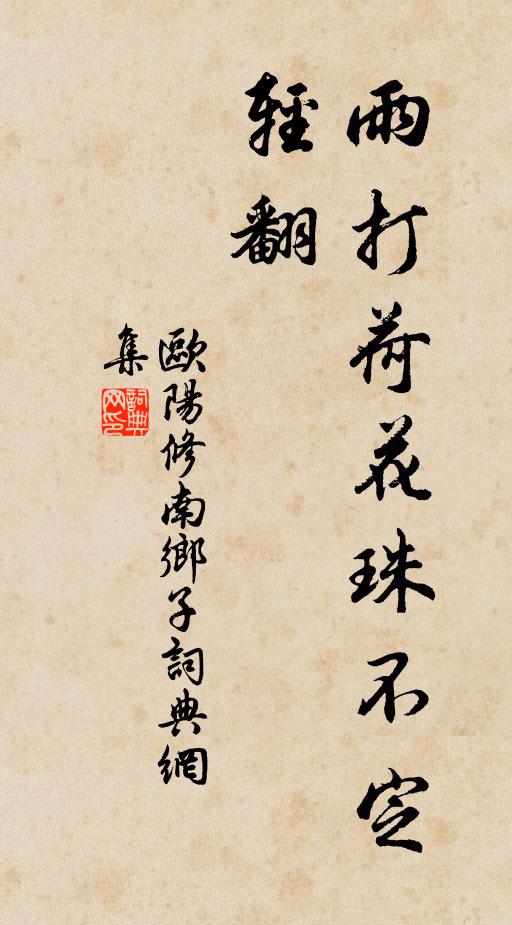 雨打荷花珠不定
輕翻
歐陽修南鄉子詞典網
集
詞典網印